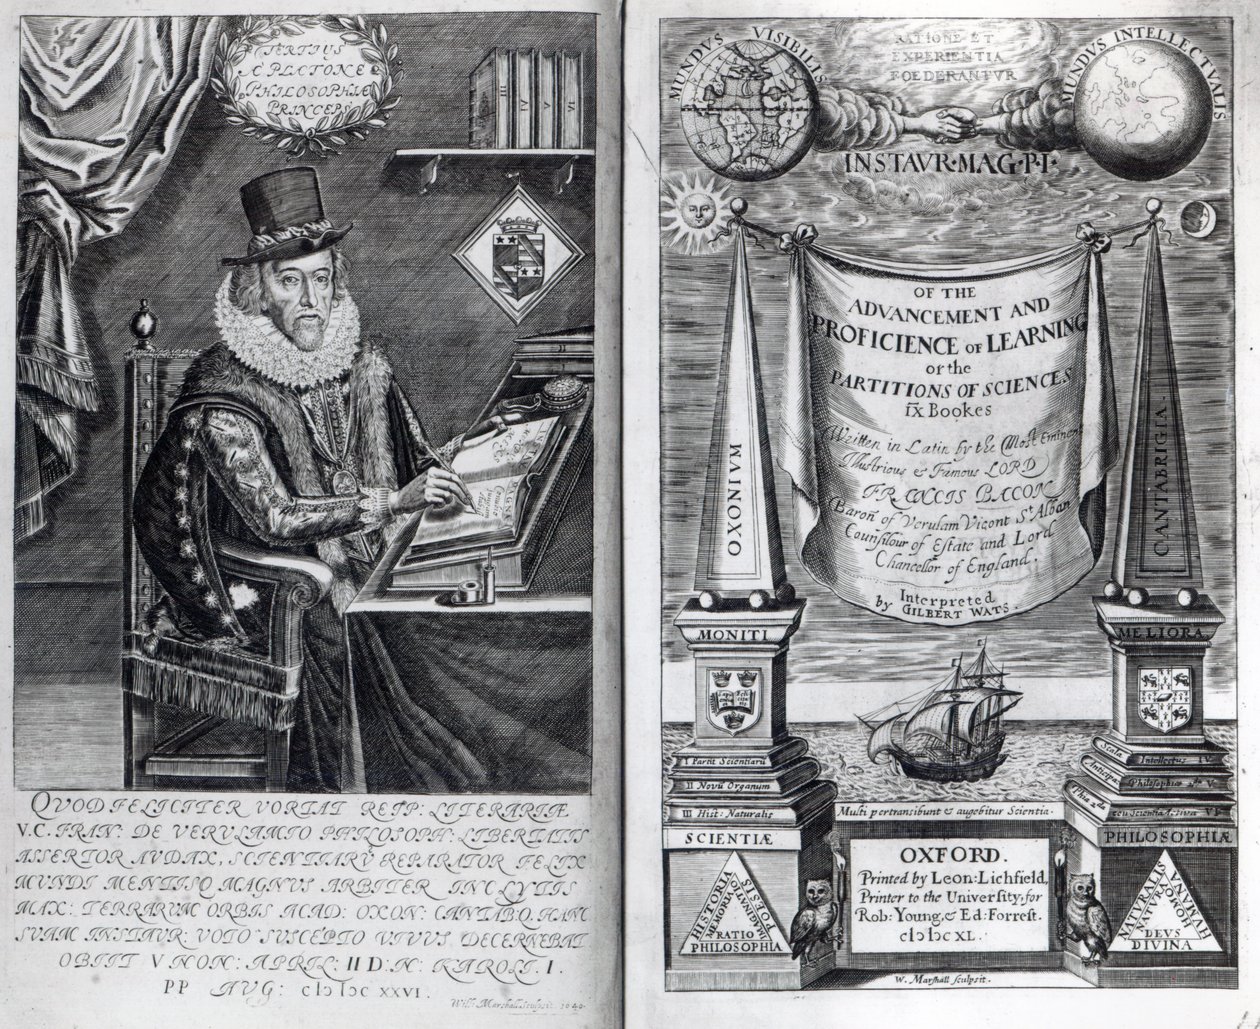 TERTIVS
A PLATONE
PHILOSOPHIÆ
PRINCEPS
III
IV
V
VI
QVOD FELICITER VORTAT REIP: LITERARIÆ
V.C. FRAN: DE VERULAMIO PHILOSOPH: LIBERTATIS
ASSERTOR AVDAX, SCIENTIARV̄ REPARATOR FELIX
MUNDI MENTISQ MAGNVS ARBITER INCLYTIS
MAX: TERRARVM ORBIS ACAD: OXON: CANTABQ HANC
SVAM INSTAUR: VOTO SVSCEPTO VIVVS DECERNEBAT
OBIIT V NON: APRIL: II D: N: KAROLI. I.
PP AVG: cIↄ Iↄc XXVI.
Will: Marshall sculpsit. 1640.
MUNDVS VISIBILIS
RATIONE ET
EXPERIENTIA
FOEDERANTVR
MVNDVS INTELLECTVALIS
INSTAVR·MAG·P·I·
OF THE
ADVANCEMENT AND
PROFICIENCE OF LEARNING
or the
PARTITIONS OF SCIENCES
IX Bookes
Written in Latin by the Most Eminent
Illustrious & Famous LORD
FRANCIS BACON
Baron of Verulam Vicont St Alban
Counsilour of Estate and Lord
Chancellor of England.
Interpreted
by GILBERT WATS.
OXONIVM
CANTABRIGIA
MONITI
MELIORA
I Partit Scientiarū
II Novū Organum
III Hist: Naturalis
SCIENTIÆ
Scala Intellectus IV
Anticipat Philosophiæ 2æ V
Phia 2da
VI
PHILOSOPHIÆ
Multi pertransibunt & augebitur Scientia.
HISTORIA
MEMORIA
POESIS
RATIO
PHILOSOPHIA
OXFORD.
Printed by Leon: Lichfield,
Printer to the University, for
Rob: Young, & Ed: Forrest.
cIↄ Iↄc XL.
NATURALIS
NATURA
HUMANA
HOMO
DEVS
DIVINA
W. Marshall sculpsit.